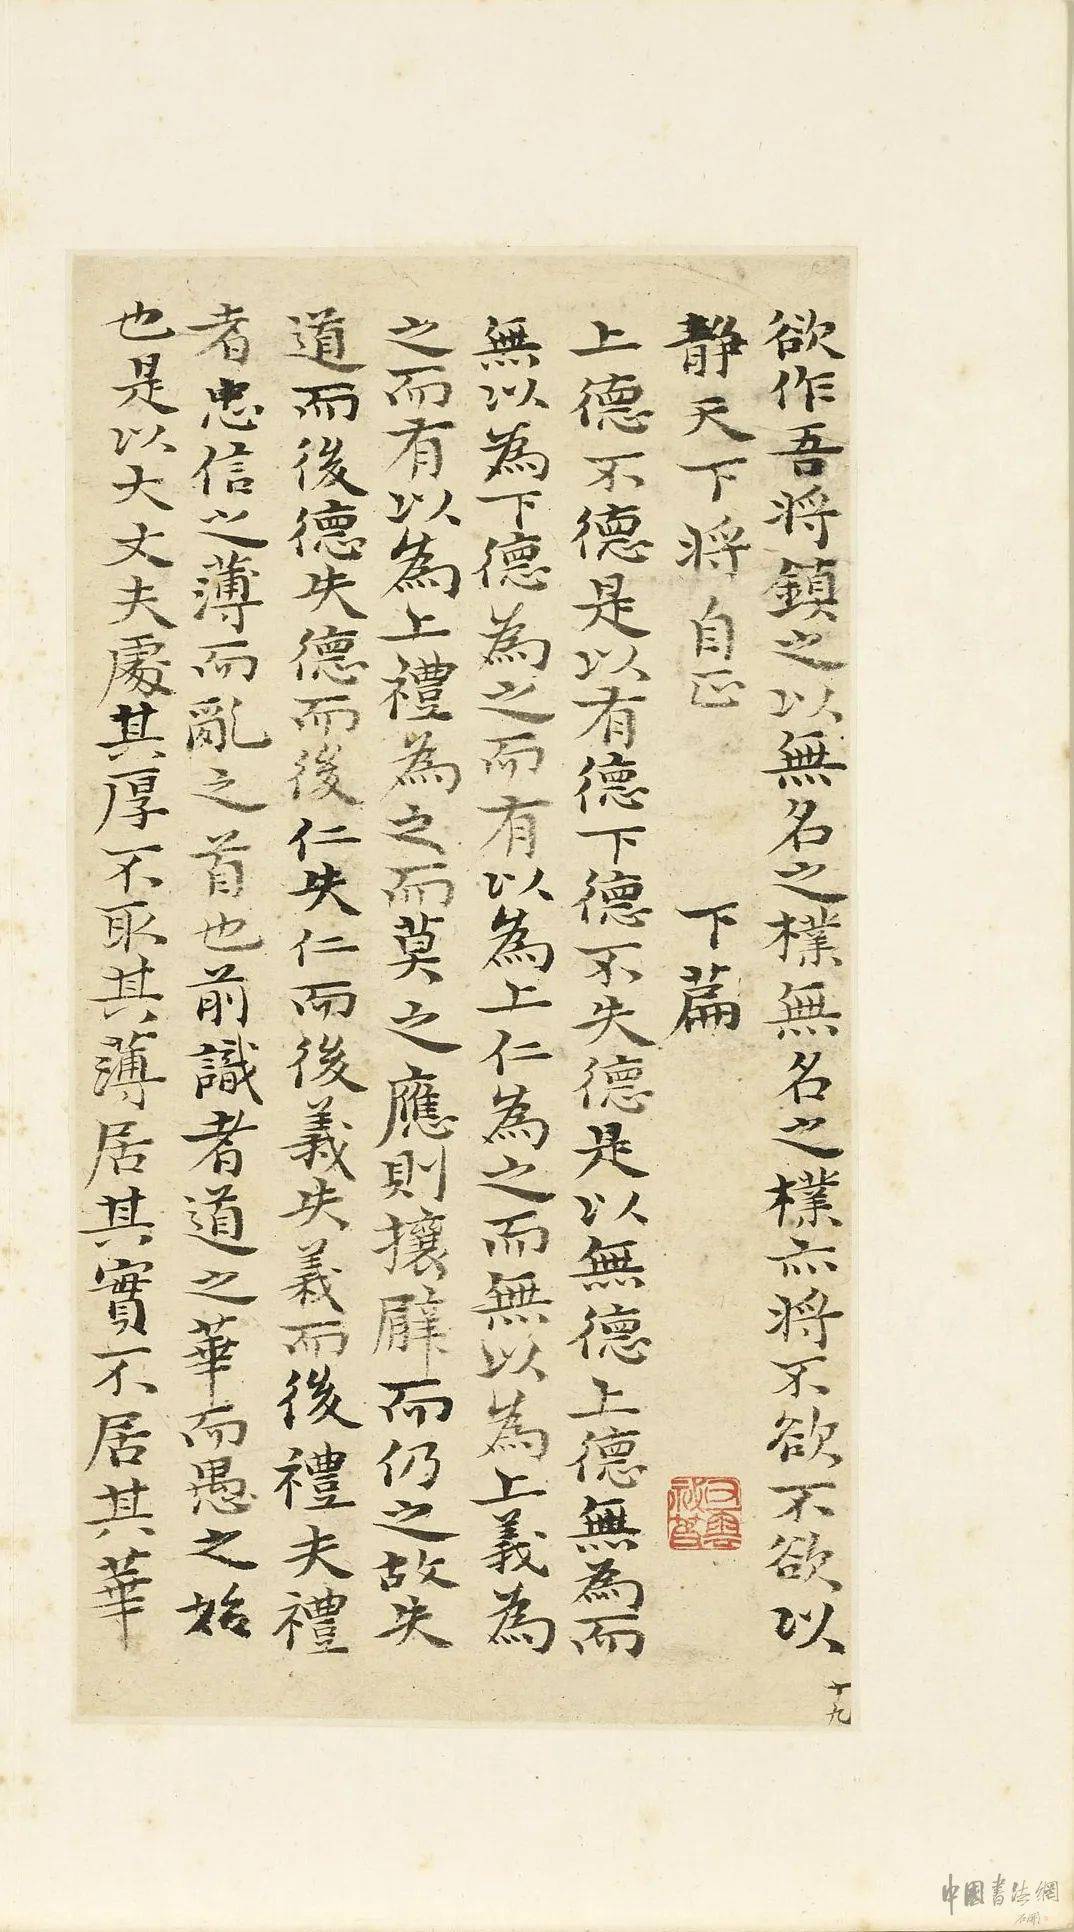 欲作吾将鎮之以無名之樸無名之樸亦将不欲不欲以
静天下将自正 下篇
上德不德是以有德下德不失德是以無德上德無為而
無以為下德為之而有以為上仁為之而無以為上義為
之而有以為上禮為之而莫之應則攘臂而仍之故失
道而後德失德而後仁失仁而後義失義而後禮夫禮
者忠信之薄而亂之首也前識者道之華而愚之始
也是以大丈夫處其厚不取其薄居其實不居其華
十九
中國書法網